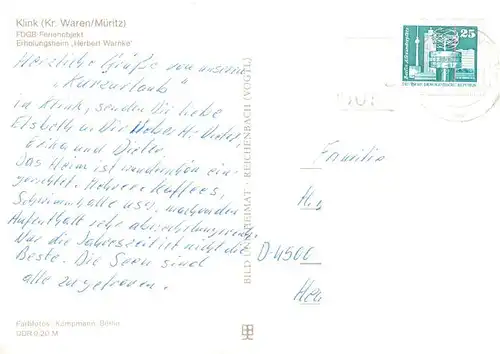 Klink (Kr. Waren/Müritz)
FDGB-Ferienobjekt
Erholungsheim „Herbert Warnke"
Herzliche Grüße von unserem
„Kurzurlaub"
in Klink, senden Dir liebe
Elsbeth u. Dir lieber
Erika und Dieter.
Das Heim ist wunderschön ein-
gerichtet. Mehrere Kaffees,
Schwimmhalle usw. machen den
Aufenthalt sehr abwechslungsreich.
Nur die Jahreszeit ist nicht die
Beste. Die Seen sind
alle zugefroren.
Fachfotos - Kampmann, Berlin
DDR 0,20 M
BILD UND HEIMAT · REICHENBACH (VOGTL)
25
Familie
D-4500